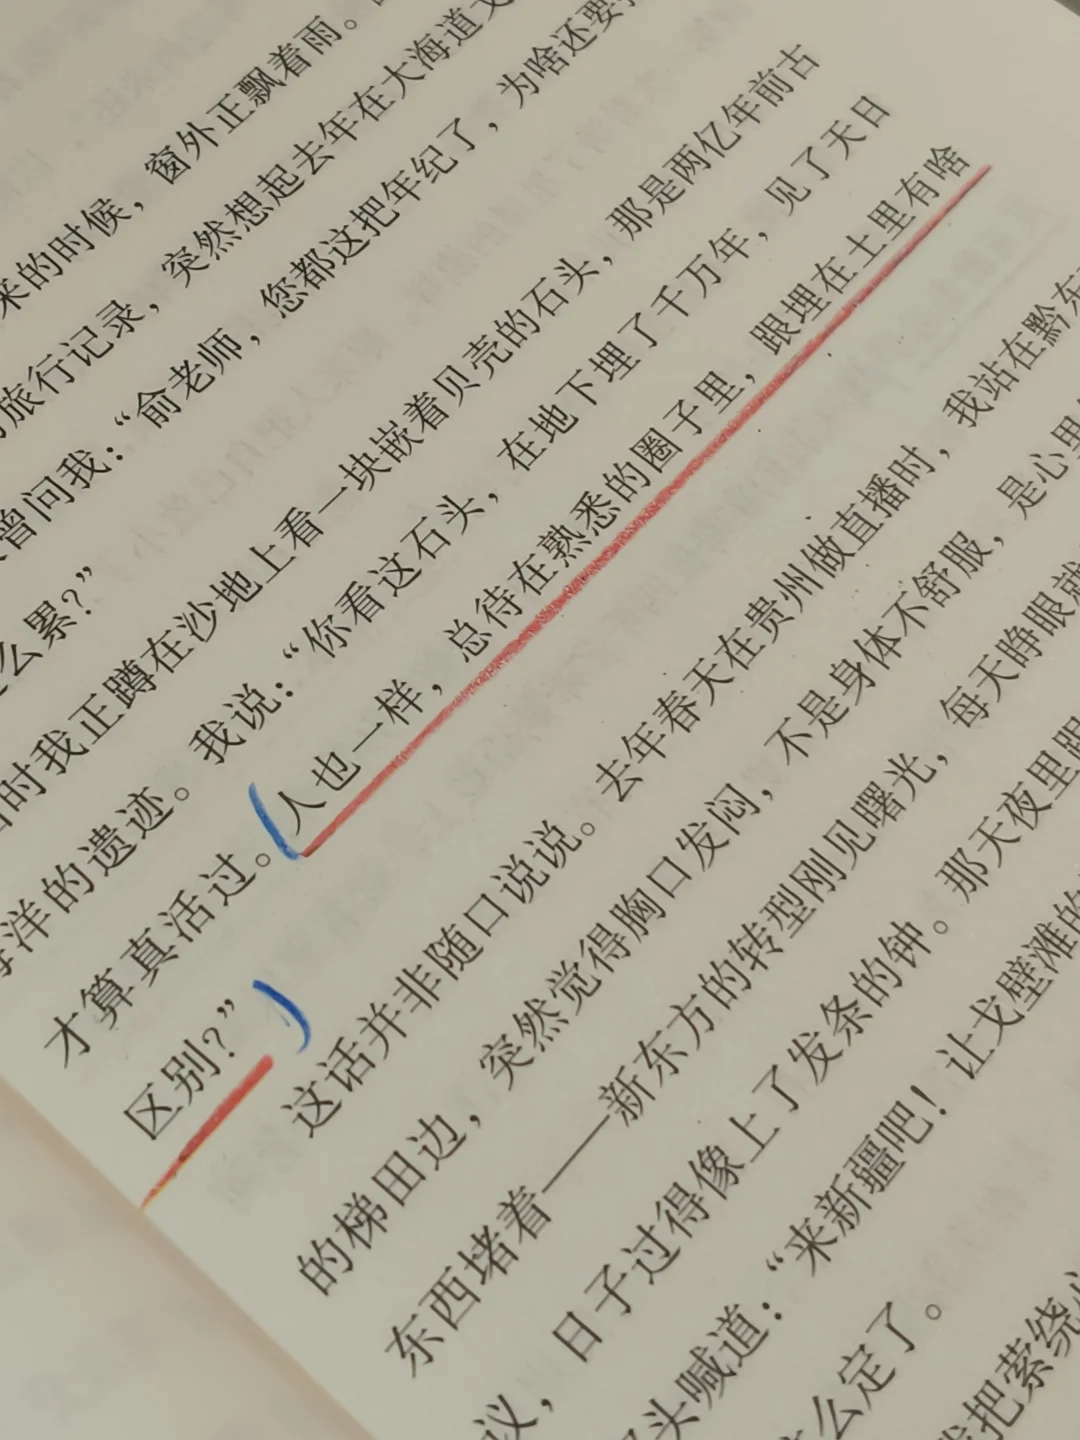 来的时候，窗外正飘着雨。
旅行记录，突然想起去年在大海道文
曾问我：“俞老师，您都这把年纪了，为啥还要
么累？”
时我正蹲在沙地上看一块嵌着贝壳的石头，那是两亿年前古
海洋的遗迹。我说：“你看这石头，在地下埋了千万年，见了天日
才算真活过。人也一样，总待在熟悉的圈子里，跟埋在土里有啥
区别？”
这话并非随口说说。去年春天在贵州做直播时，我站在黔东
的梯田边，突然觉得胸口发闷，不是身体不舒服，是心里
东西堵着——新东方的转型刚见曙光，每天睁眼就
日子过得像上了发条的钟。那天夜里跟
议，“来新疆吧！让戈壁滩的
头喊道：
么定了。
把萦绕心